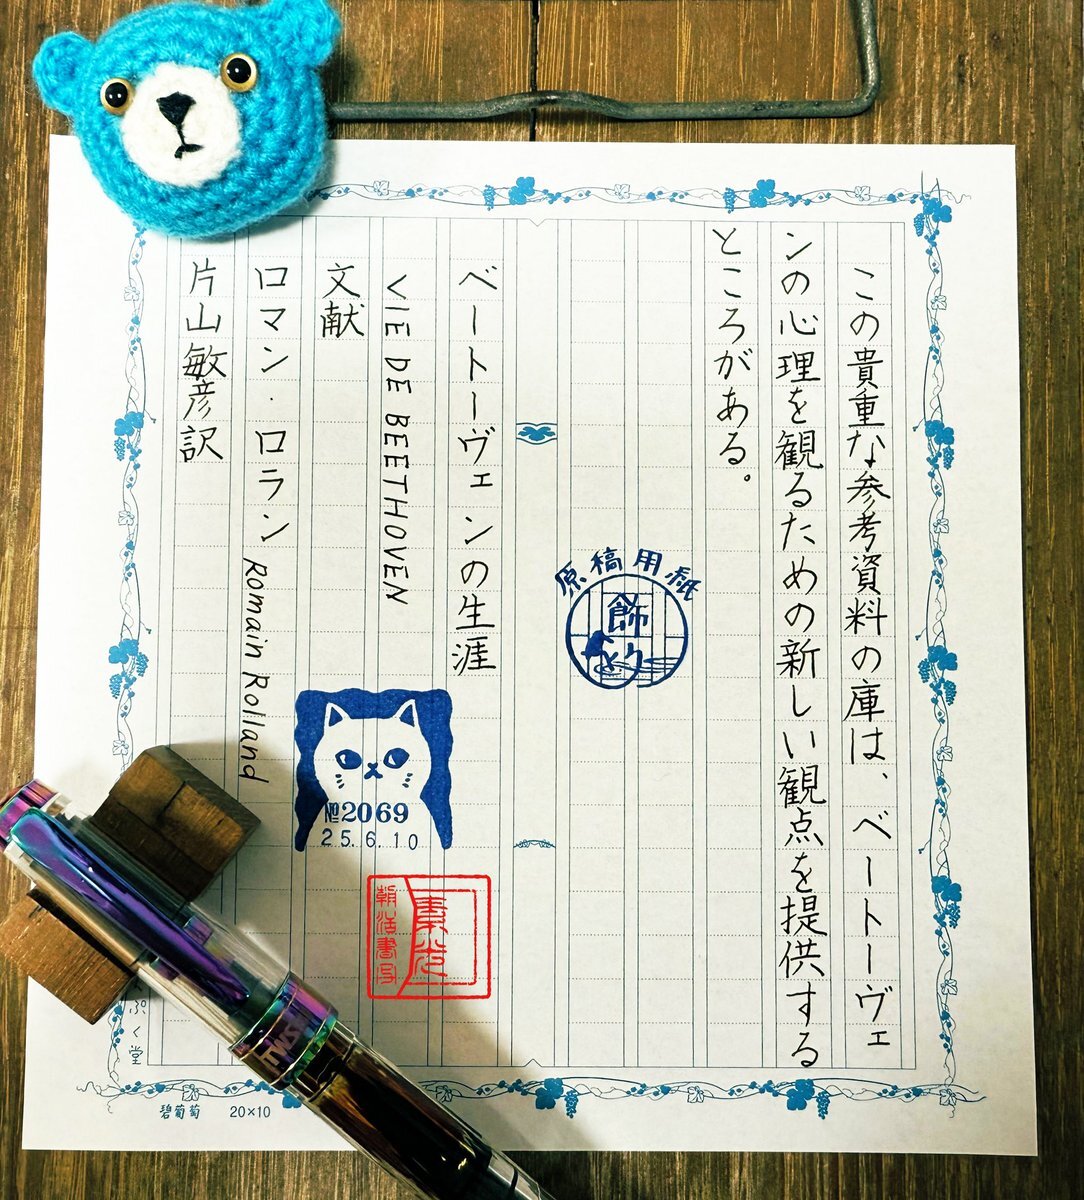 この貴重な参考資料の庫は、ベートーヴェ
ンの心理を観るための新しい観点を提供する
ところがある。
原稿用紙
飾
ベートーヴェンの生涯
VIE DE BEETHOVEN
文献
ロマン・ロラン Romain Rolland
片山敏彦訳
№2069
25.6.10
朝活書写
ぷく堂
碧葡萄 20×10
TWSBI